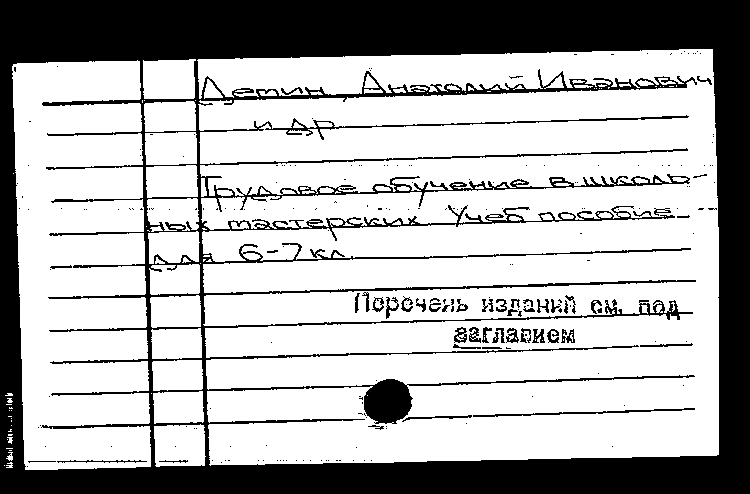 Демин, Анатолий Иванович
и др
Трудовое обучение в школь-
ных мастерских Учеб пособие
для 6-7 кл
Перечень изданий см. под
заглавием